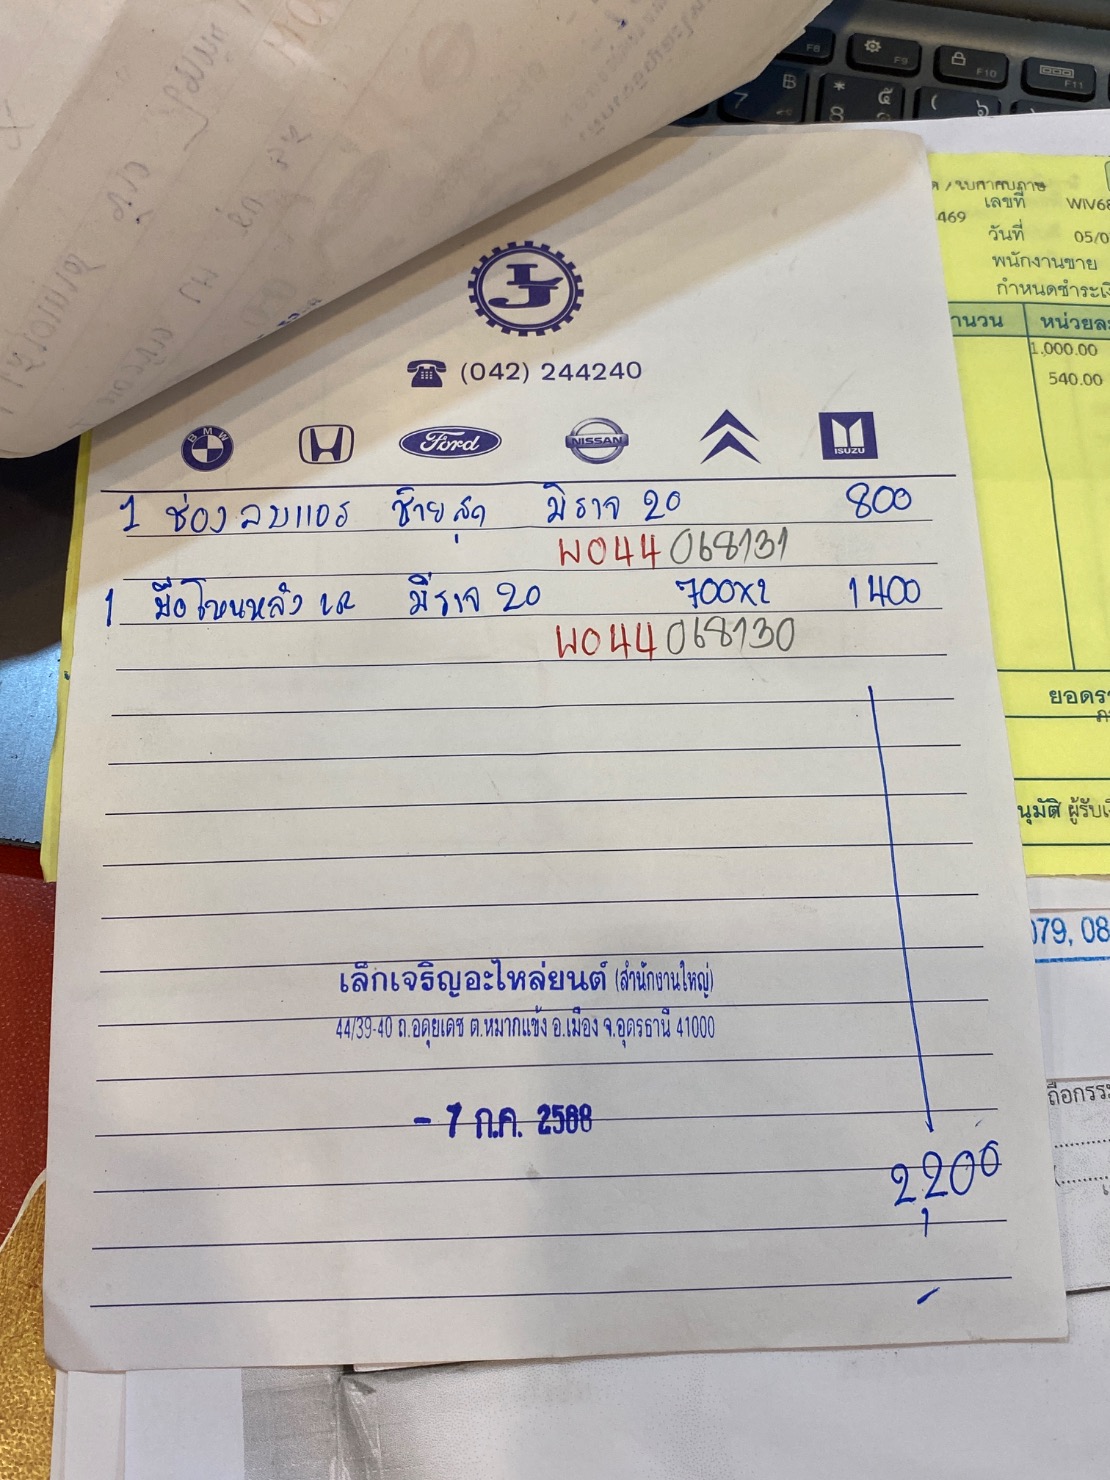 F8
F9
F10
F11
7 B
* 8 ๕
( ๖
เลขที่
469
วันที่ 05/0
พนักงานขาย
กำหนดชำระเงิ
านวน หน่วยละ
1,000.00
540.00
(042) 244240
BMW
Ford
NISSAN
ISUZU
1 ช่องลมแอร์ ซ้ายสุด มิราจ 20 800
WO44 068131
1 มือโหนหลัง LR มิราจ 20 700x2 1400
WO44 068130
ยอดร
นุมัติ ผู้รับเ
079, 08
เล็กเจริญอะไหล่ยนต์ (สำนักงานใหญ่)
44/39-40 ถ.อดุยเดช ต.หมากแข้ง อ.เมือง จ.อุดรธานี 41000
- 7 ก.ค. 2568
2,200